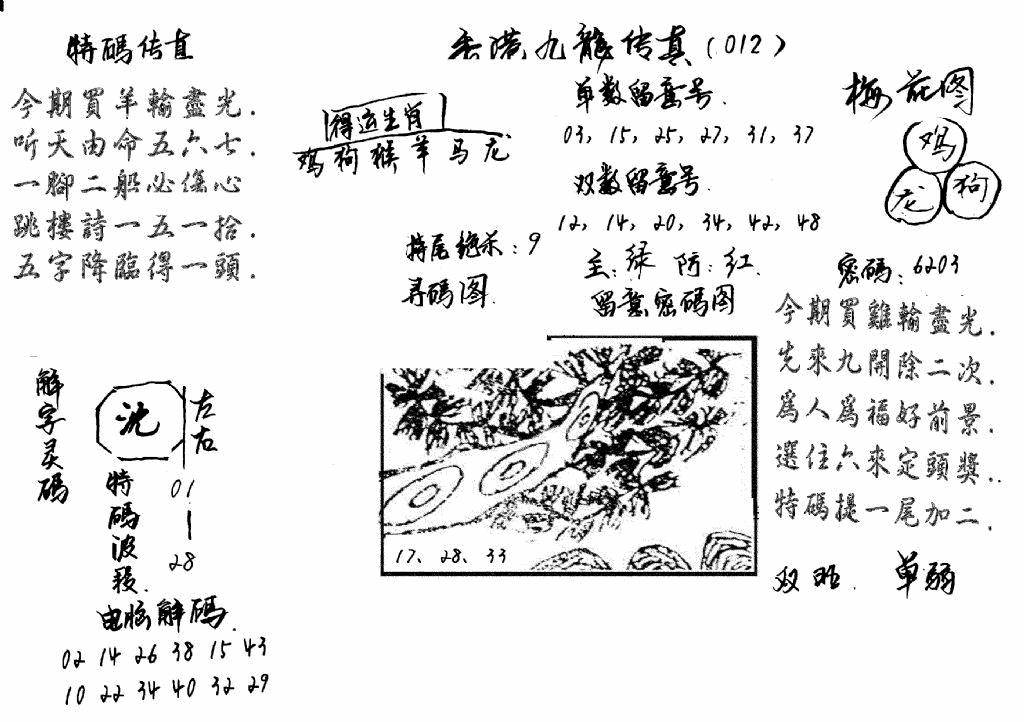 特碼传真
今期買羊輸盡光.
听天由命五六七.
一腳二船必傷心
跳樓詩一五一拾.
五字降臨得一頭.
香港九龍传真(012)
得运生肖
鸡狗猴羊马龙
单数留意号.
03, 15, 25, 27, 31, 37
双数留意号.
12, 14, 20, 34, 42, 48
特尾绝杀: 9
主:绿 防:红.
寻码图.
留意密码图
17、28、33
梅花图
鸡
龙 狗
密碼: 6203
今期買雞輸盡光.
先來九開除二次.
爲人爲福好前景.
選住六來定頭獎..
特碼提一尾加二.
单弱
解字灵碼
沈
左右
特碼波段.
01
28
电脑解碼.
02 14 26 38 15 43
10 22 34 40 32 29